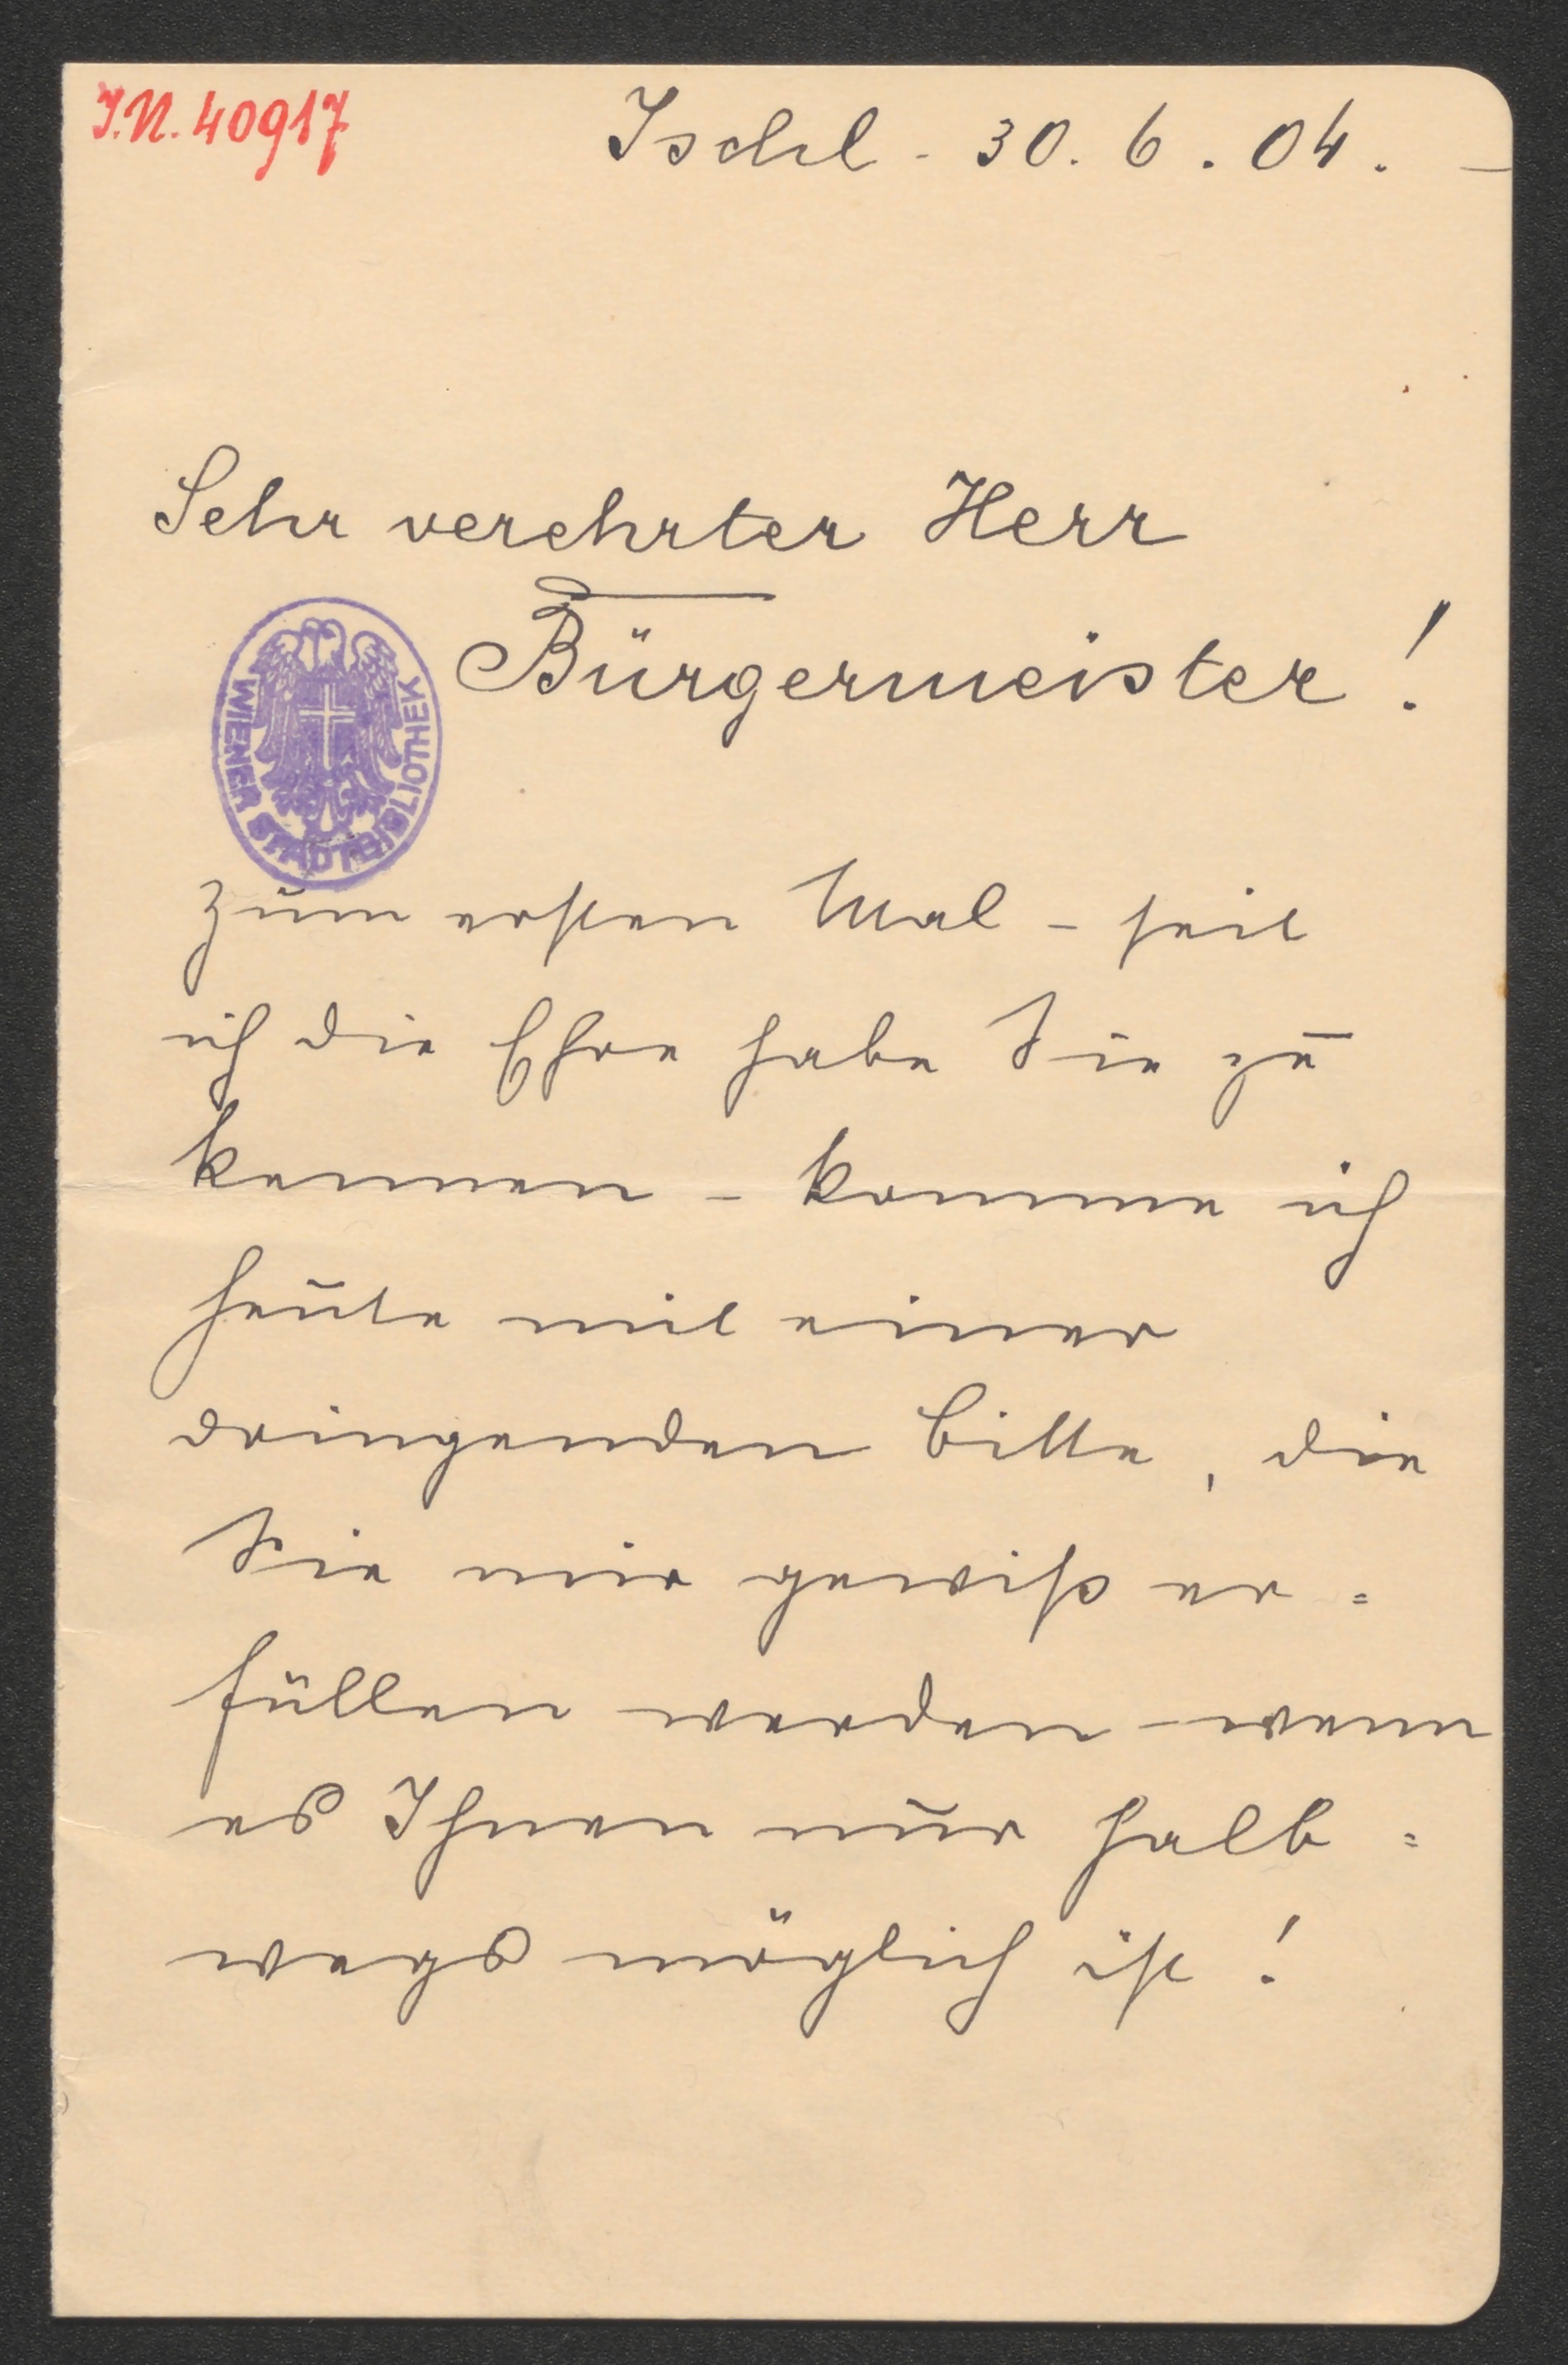 I.N. 40917
Ischl - 30. 6. 04. -
Sehr verehrter Herr
Bürgermeister!
WIENER STADTBIBLIOTHEK
Zum ersten Mal - seit
ich die Ehre habe Sie zu
kennen - komme ich
heute mit einer
dringenden Bitte, die
Sie mir gewiß er=
füllen werden - wenn
es Ihnen nur halb=
wegs möglich ist!